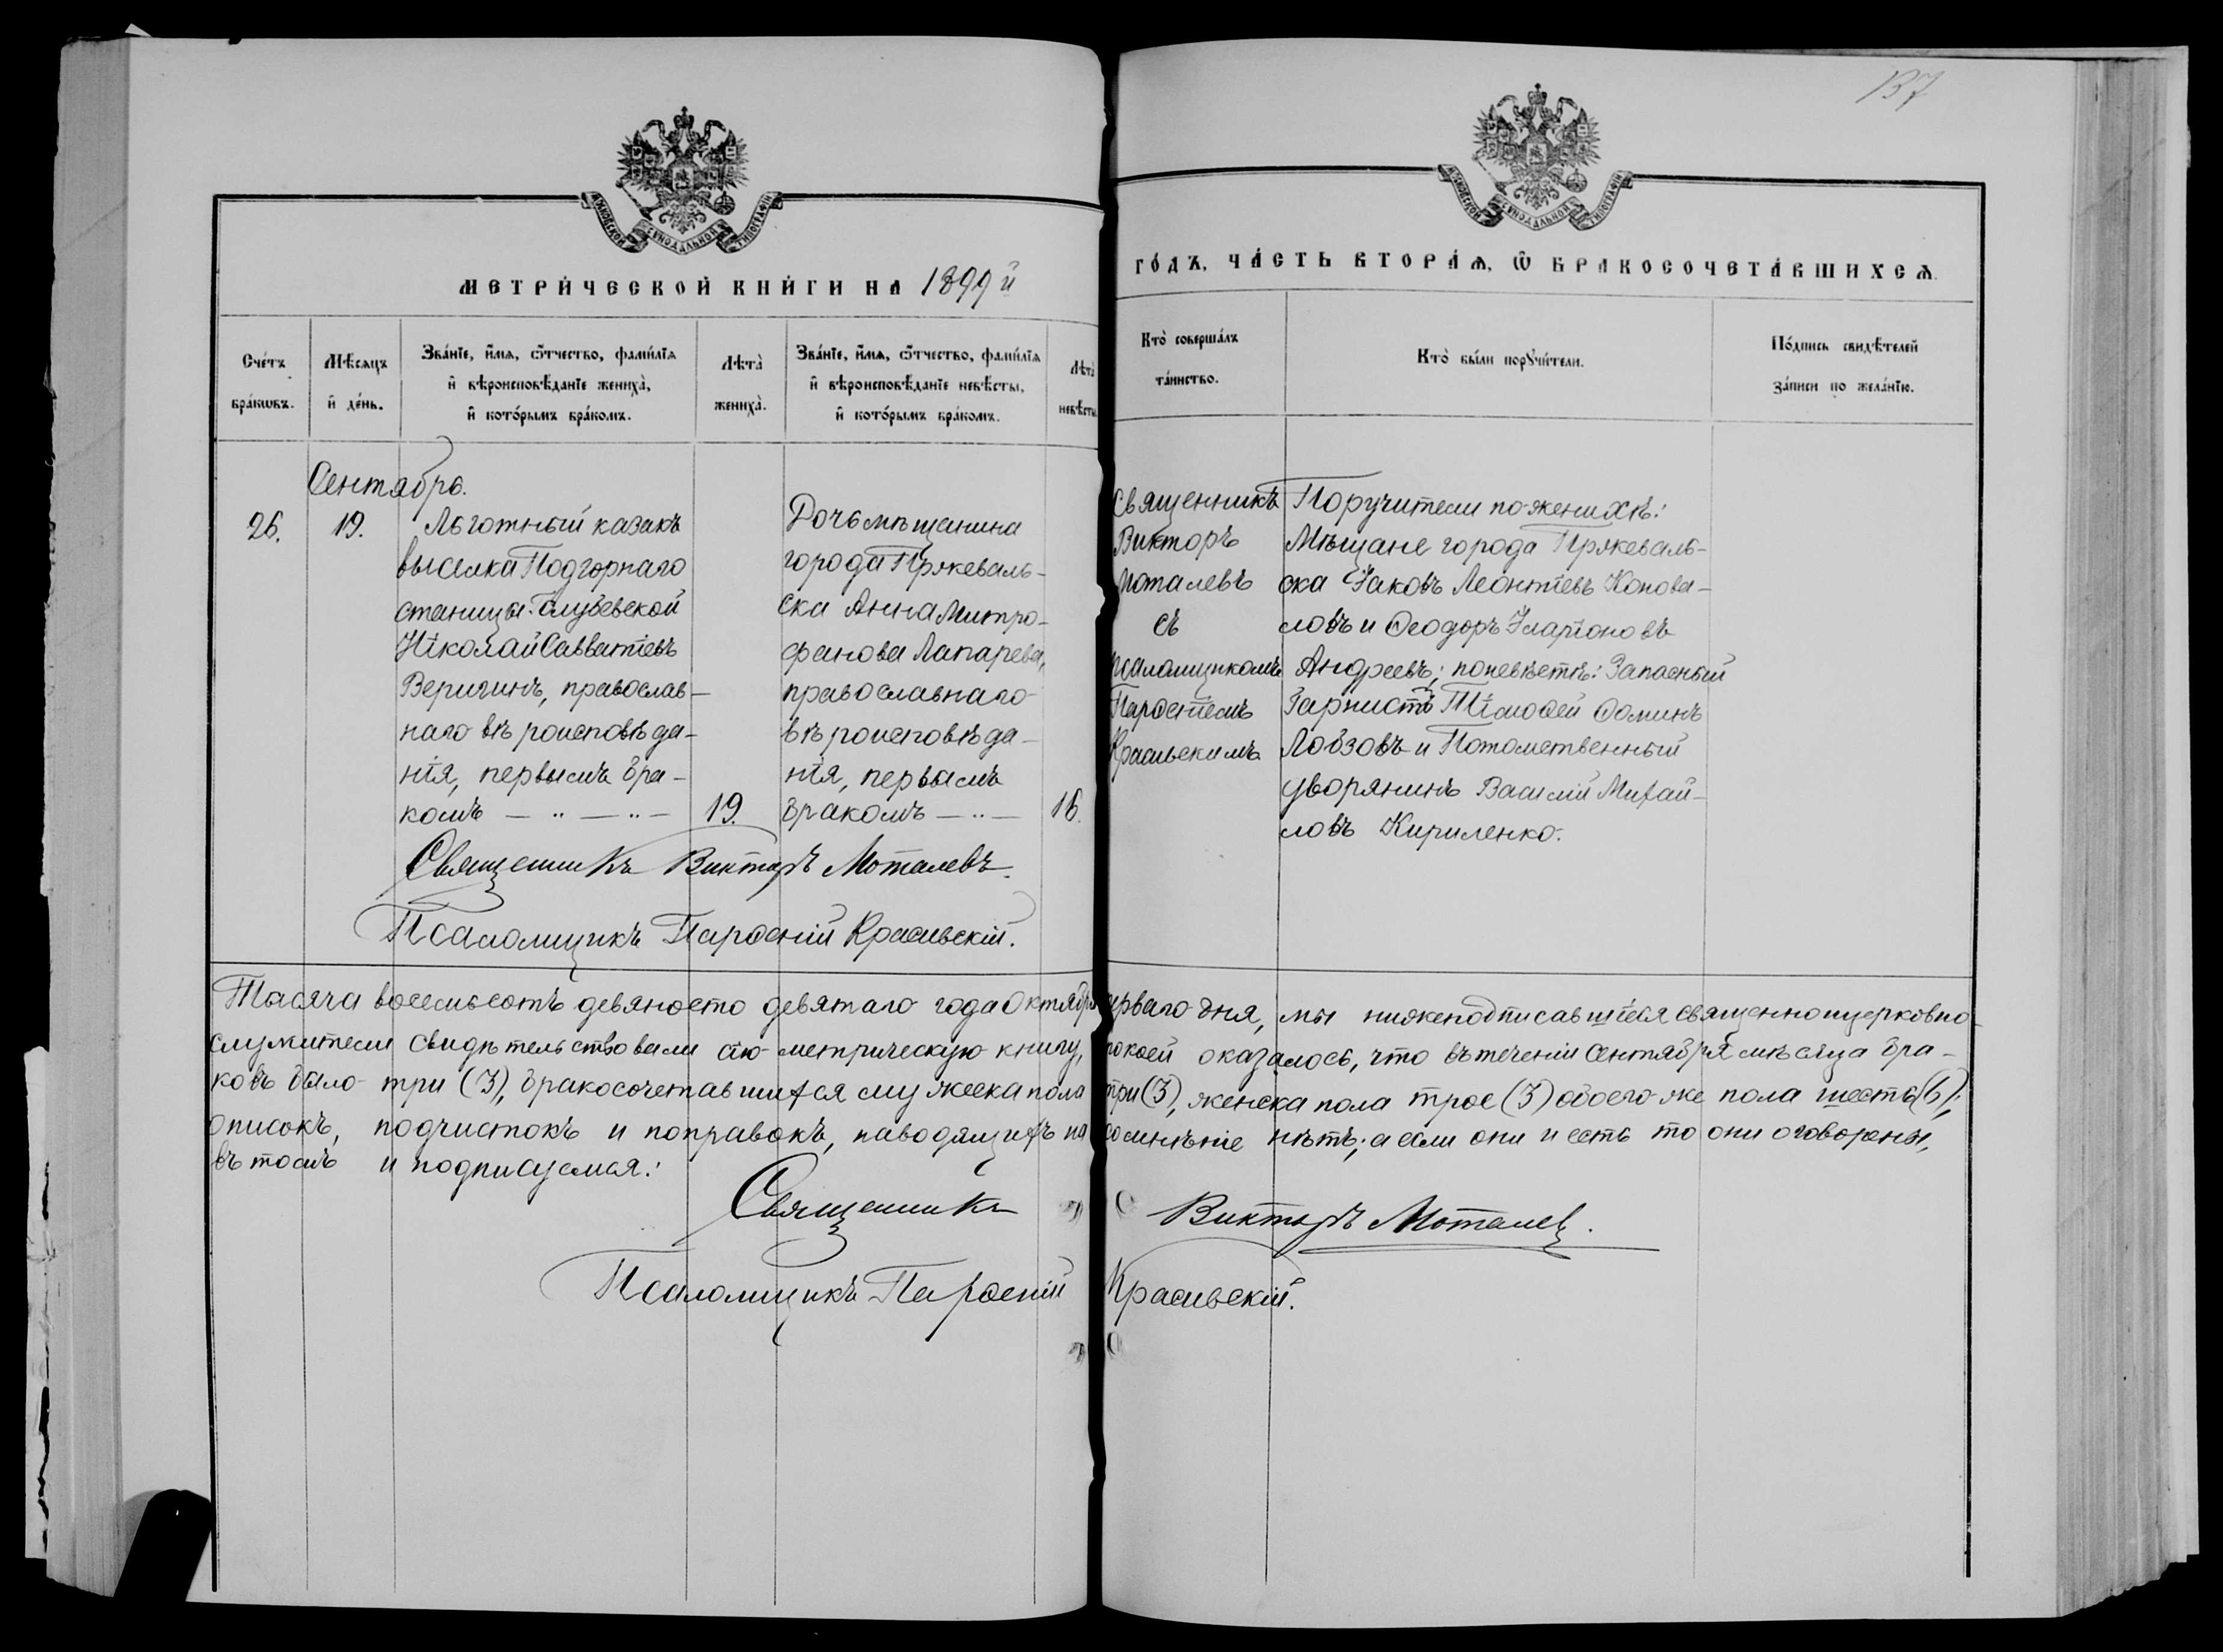 137
МОСКОВСКОЙ СѴНОДАЛЬНОЙ ТИПОГРАФІИ
МОСКОВСКОЙ СѴНОДАЛЬНОЙ ТИПОГРАФІИ
МЕТРИ́ЧЕСКОЙ КНИ́ГИ НА 1899й
ГО́ДЪ, ЧА́СТЬ ВТОРА́Ѧ, Ѿ БРАКОСОЧЕТА́ВШИХСѦ.
Сче́тъ бра́кѡвъ.
Мѣ́сяцъ и де́нь.
Зва́нїе, и́мѧ, ѻ҆́тчество, фами́лїѧ
и вѣроисповѣ́данїе жениха̀,
и кото́рымъ бра́комъ.
Лѣта̀ жениха̀.
Зва́нїе, и́мѧ, ѻ҆́тчество, фами́лїѧ
и вѣроисповѣ́данїе невѣ́сты,
и кото́рымъ бра́комъ.
Лѣта̀ невѣ́сты
Кто̀ соверша́лъ
та́инство.
Кто̀ бы́ли порꙋчи́тели.
По́дпись свидѣ́телей
за́писи по жела́нїю.
Сентябрь.
26.
19.
Льготный казакъ
выселка Подгорнаго
станицы
Николай Савватіевъ
Веригинъ, православ-
наго вѣроисповѣда-
нія, первымъ бра-
комъ — „ — „ —
19.
Дочь мѣщанина
города Пржеваль-
ска Анна Митро-
фанова Лапарева,
православнаго
вѣроисповѣда-
нія, первымъ
бракомъ — „ —
16.
Священникъ
Викторъ
Моталевъ
съ
псаломщикомъ
Парѳеніемъ
Красивскимъ
Поручители по женихѣ:
Мѣщане города Пржеваль-
ска Іаковъ Леонтіевъ Конова-
ловъ и Ѳеодоръ Иларіоновъ
Андреевъ; по невѣстѣ: Запасный
Горнистъ Тимоѳей Ѳоминъ
Лобзовъ и Потомственный
дворянинъ Василій Михай-
ловъ Кириленко.
Священникъ Викторъ Моталевъ.
Псаломщикъ Парѳеній Красивскій.
Тысяча восемьсотъ девяносто девятаго года Октября перваго дня, мы нижеподписавшіеся священноцерковно-
служители свидѣтельствовали сію метрическую книгу, по коей оказалось, что въ теченіи Сентября мѣсяца бра-
ковъ было три (3), бракосочетавшихся мужеска пола три (3), женска пола трое (3) обоего же пола шесть (6);
описокъ, подчистокъ и поправокъ, наводящихъ на сомнѣніе нѣтъ; а если они и есть то они оговорены,
въ томъ и подписуемся:
Священникъ Викторъ Моталевъ.
Псаломщикъ Парѳеній Красивскій.